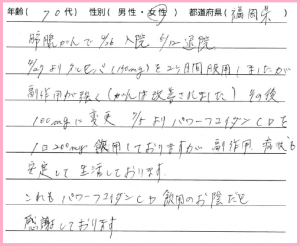 年齢( 70代) 性別(男性・女性) 都道府県(福岡県)
膵臓がんで 4/26 入院 5/12 退院
6/27より タルセバ(150mg)を2ヶ月間服用しましたが
副作用が強く(がんは改善されました)その後
100mgに変更 7/5よりパワーフコイダンCDを
1日200ml飲用しておりますが 副作用 病状も
安定して生活しております
これも パワーフコイダンCD 飲用のお陰だと
感謝しております